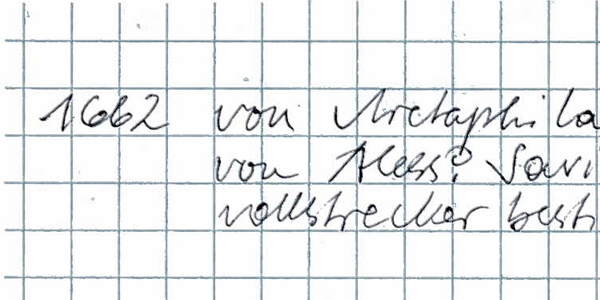 1662 von Aretaphila
von Aless? Savi
vollstrecker best